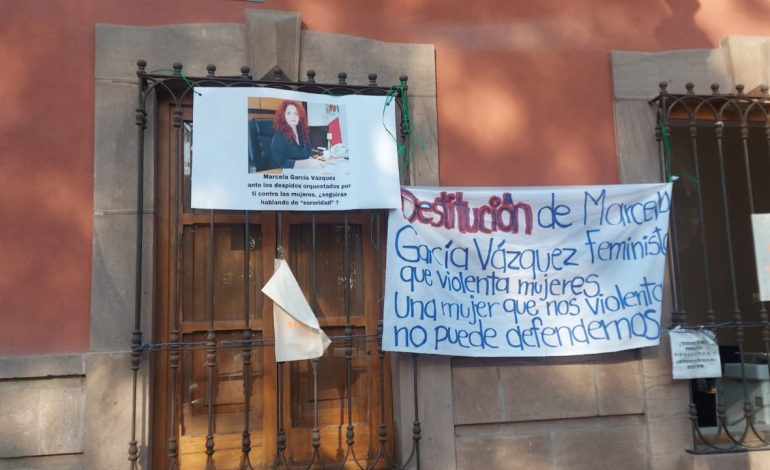 Marcela García Vázquez
ante los despidos orquestados por
ti contra las mujeres, ¿seguirán
hablando de "sororidad" ?
Destitución de Marcela
García Vázquez feminista
que violenta mujeres.
Una mujer que nos violenta
no puede defendernos